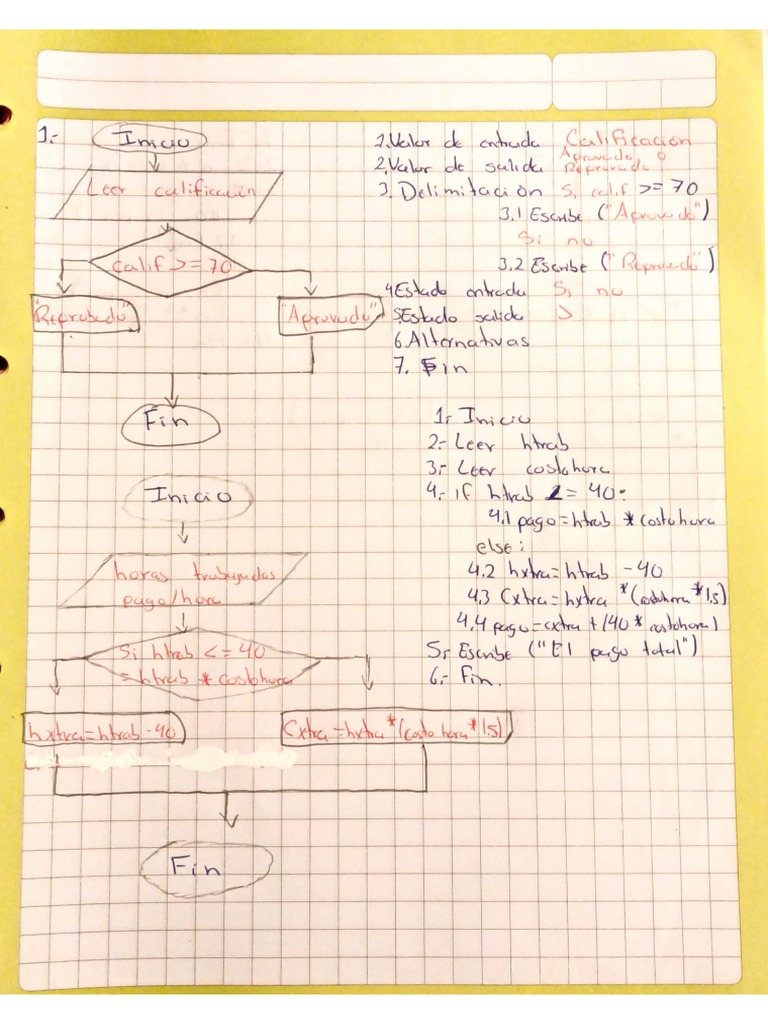 1.-
Inicio
Leer calificación
calif >= 70
"Reprobado"
"Aprovado"
Fin
1. Valor de entrada Calificación
2. Valor de salida Aprovado o
Reprovado
3. Delimitación Si calif >= 70
3.1 Escribe ("Aprovado")
Si no
3.2 Escribe ("Reprovado")
4 Estado entrada Si no
5. Estado salida >
6. Alternativas
7. Fin
Inicio
horas trabajadas
pago/hora
Si htrab <= 40
= htrab * costohora
hxtra = htrab - 40
Cxtra = hxtra * (costo hora * 1.5)
Fin
1.- Inicio
2.- Leer htrab
3.- Leer costohora
4.- if htrab <= 40:
4.1 pago = htrab * costohora
else:
4.2 hxtra = htrab - 40
4.3 Cxtra = hxtra * (costohora * 1.5)
4.4 pago = cxtra + (40 * costohora)
5.- Escribe ("El pago total")
6.- Fin.